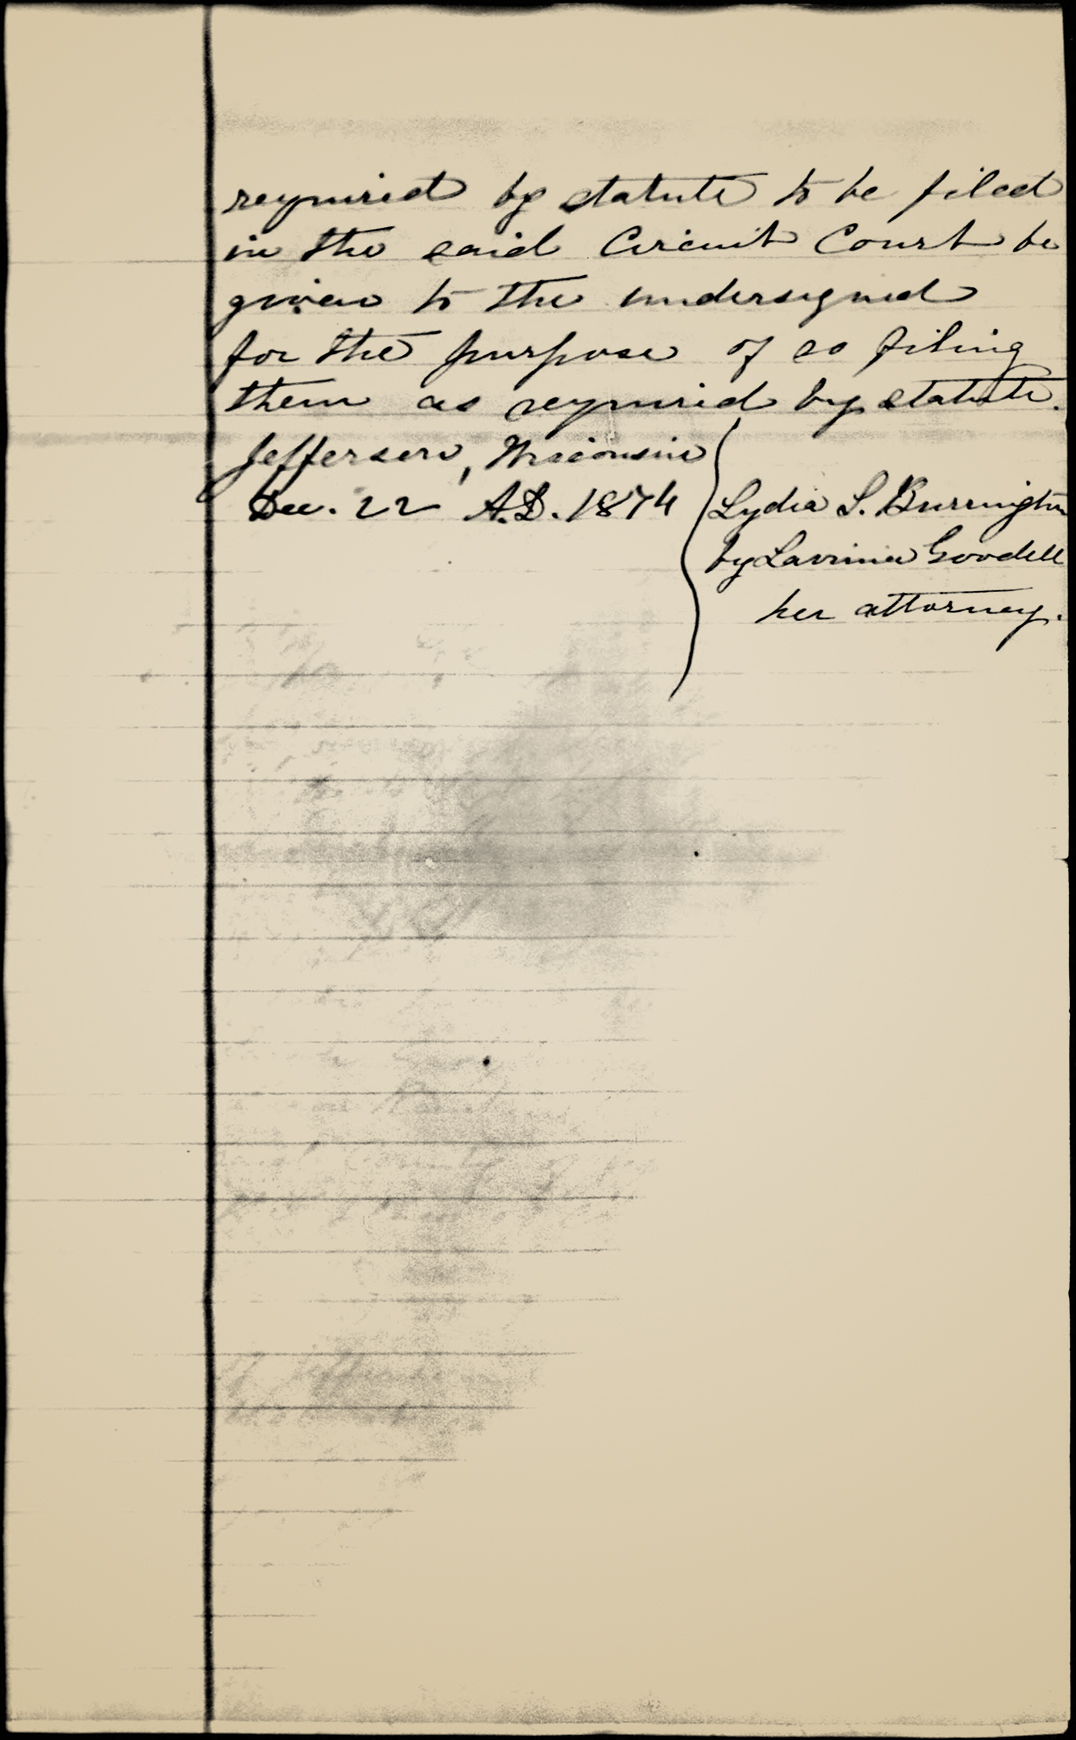 required by statute to be filed
in the said Circuit Court be
given to the undersigned
for the purpose of so filing
them as required by statute.
Jefferson, Wisconsin
Dec. 22 A.D. 1874
Lydia S. Burrington
by Lavinia Goodell
her attorney.